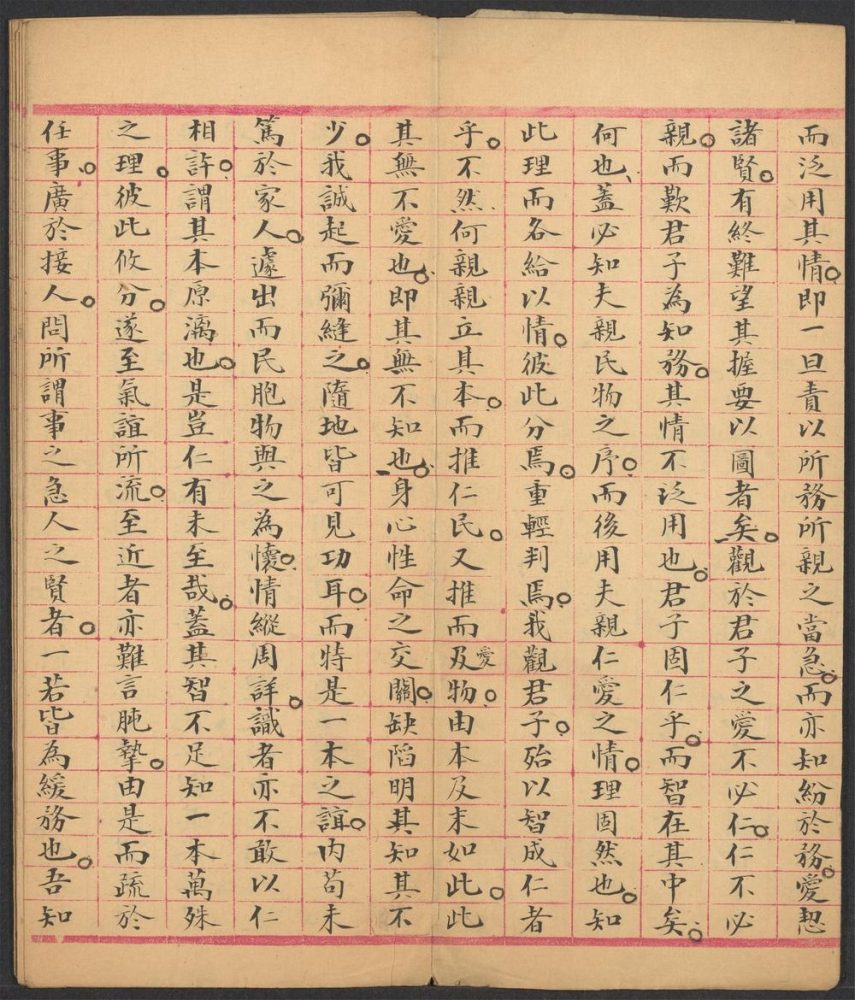 而泛用其情。即一旦責以所務所親之當急。而亦知紛於務。愛恝
諸賢。有終難望其握要以圖者矣。觀於君子之愛不必仁。仁不必
親。而歎君子為知務。其情不泛用也。君子固仁乎。而智在其中矣。
何也、蓋必知夫親民物之序。而後用夫親仁愛之情。理固然也。知
此理而各給以情。彼此分焉。重輕判焉。我觀君子。殆以智成仁者
乎。不然何親親立其本。而推仁民。又推而及愛物。由本及末如此。此
其無不愛也。即其無不知也。身心性命之交關。缺陷明其知其不
少。我誠起而彌縫之。隨地皆可見功耳。而特是一本之誼。內苟未
篤於家人。遽出而民胞物與之為懷。情縱周詳。識者亦不敢以仁
相許。謂其本原漓也。是豈仁有未至哉。蓋其智不足知一本萬殊
之理。彼此攸分。遂至氣誼所流。至近者亦難言肫摯。由是而疏於
任事。廣於接人。問所謂事之急人之賢者。一若皆為緩務也。吾知